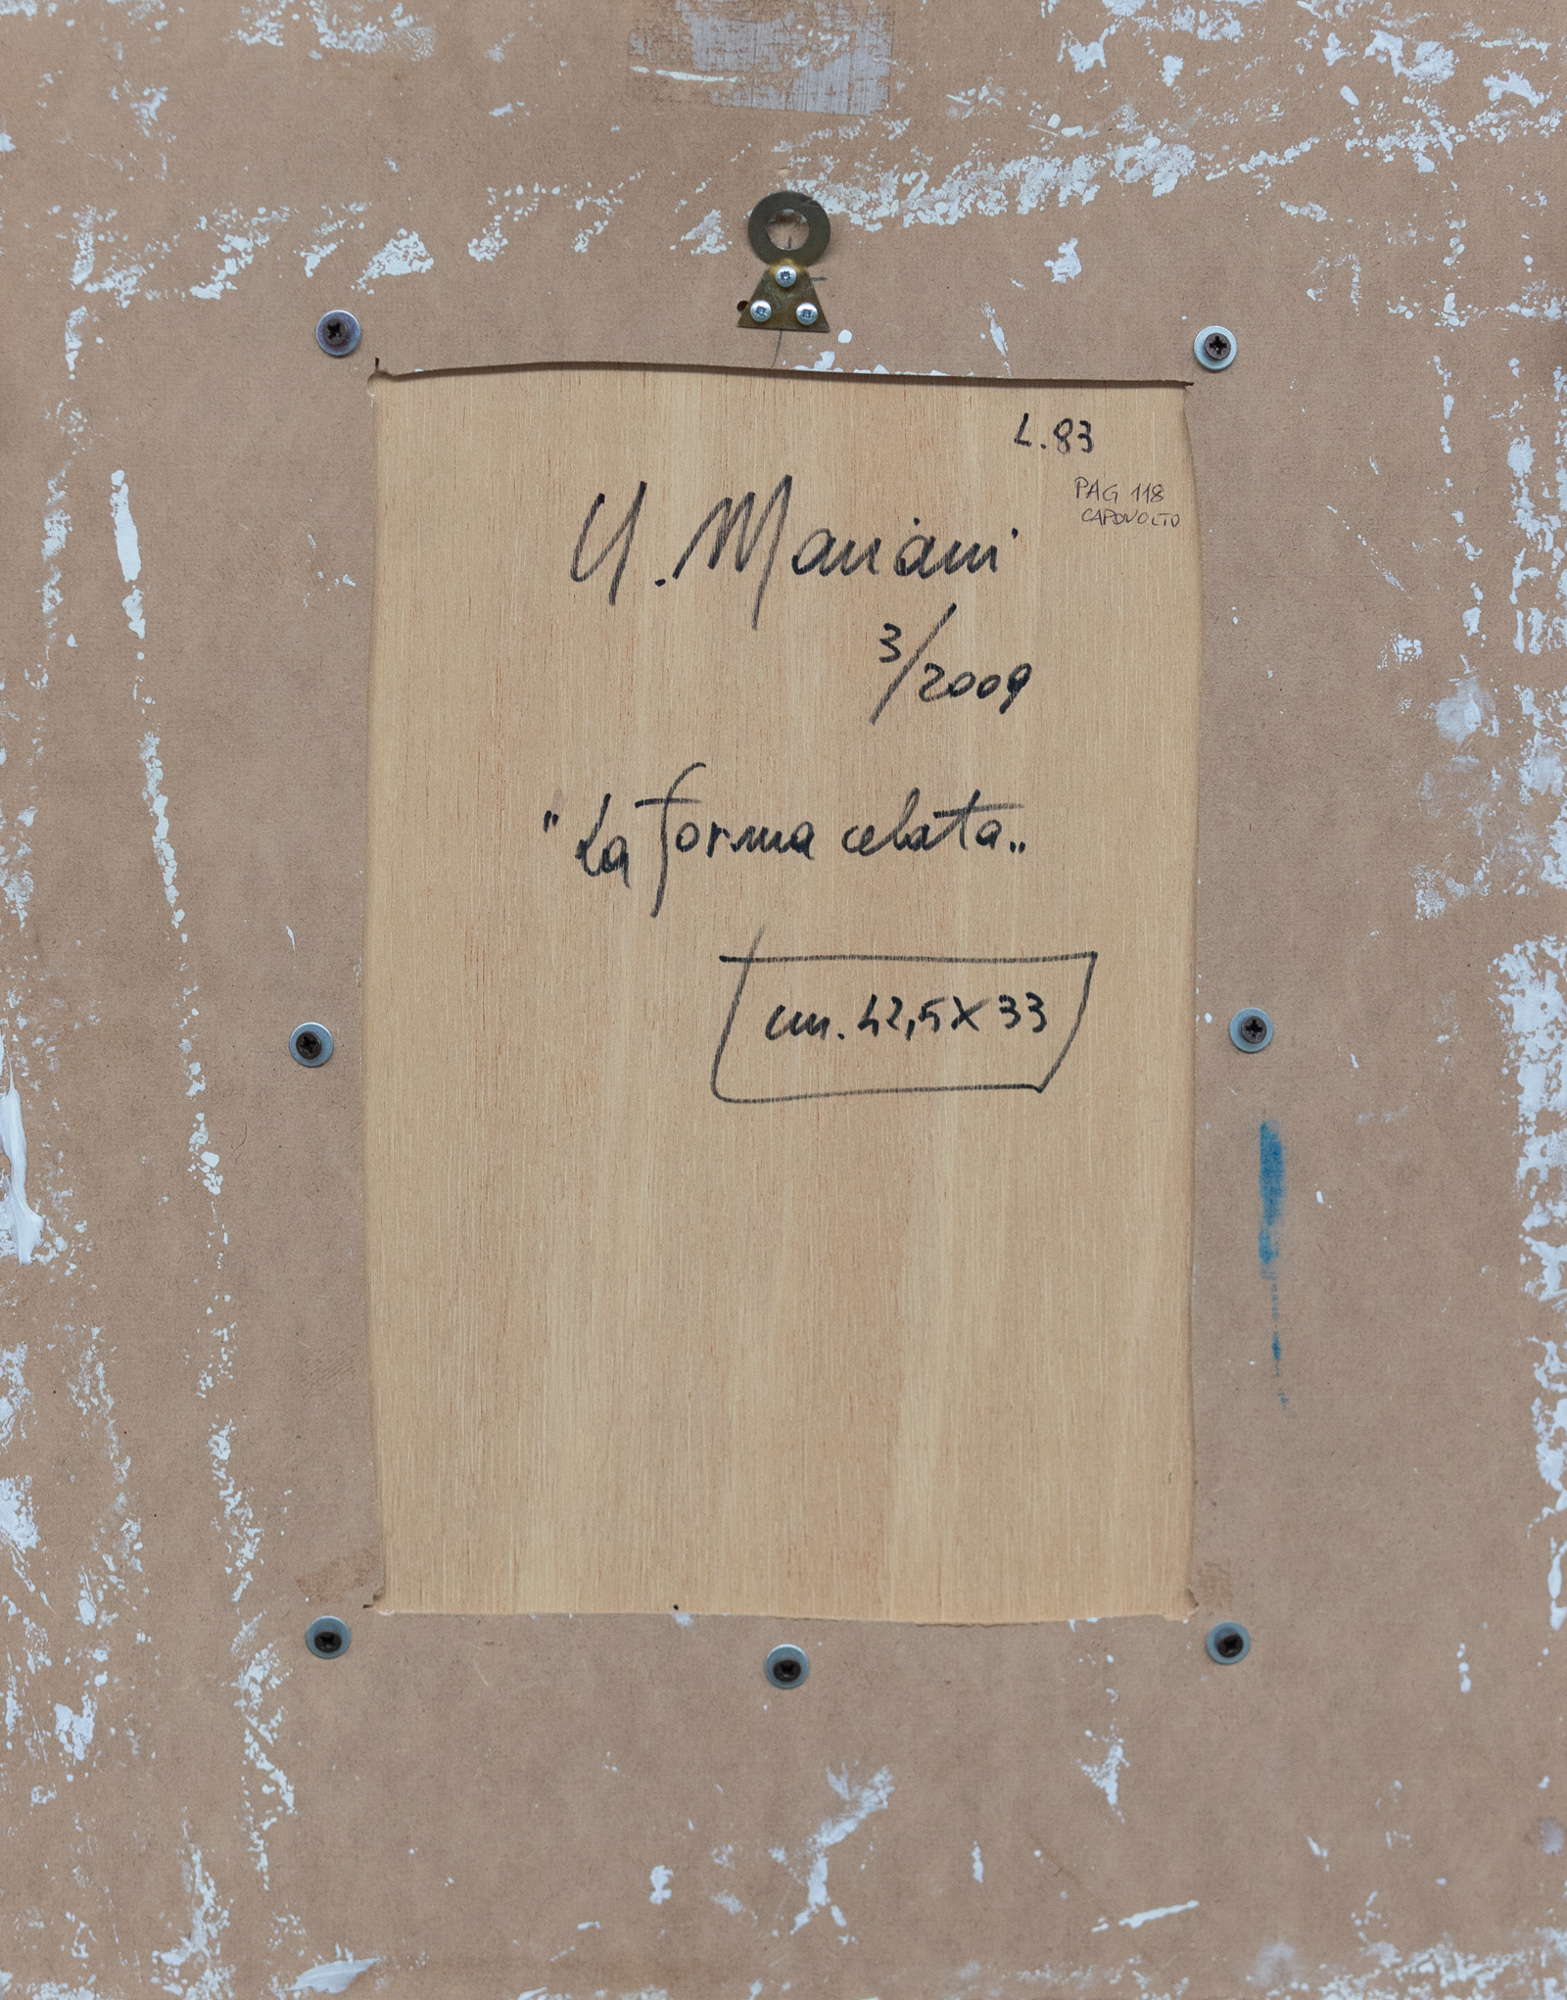 L.83
PAG 118
CAPOVOLTO
U. Mariani
3/2009
"La forma celata"
cm. 42,5X33